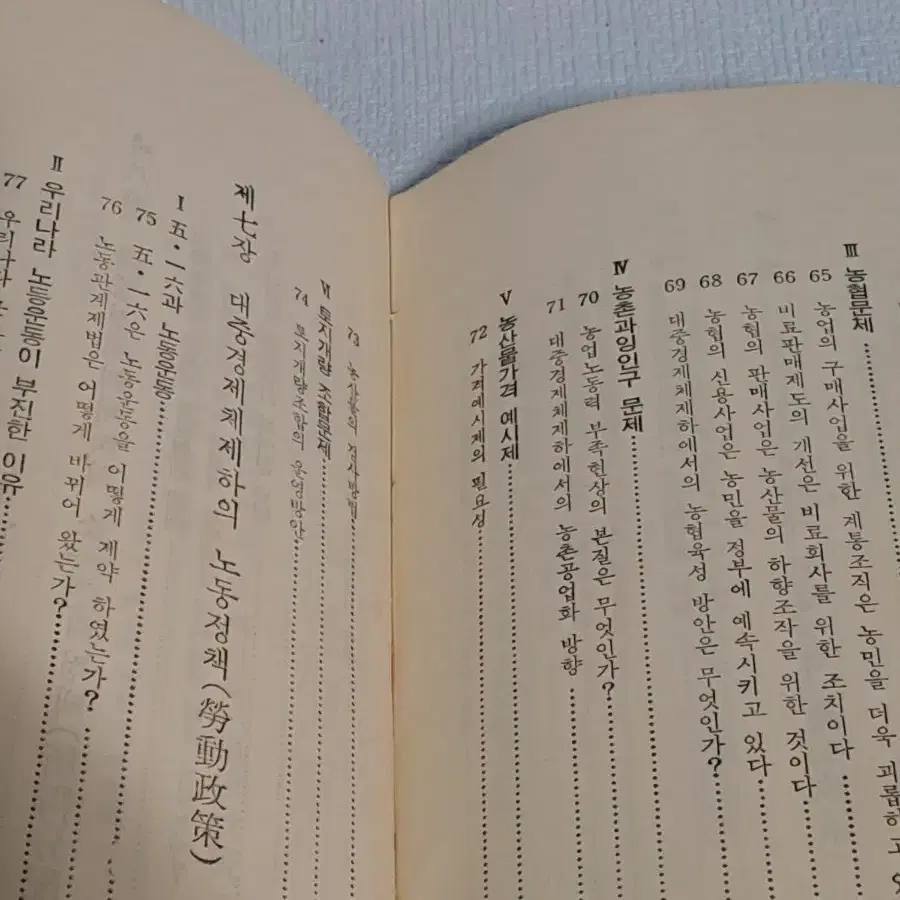 Ⅲ 농협문제
65 농업의 구매사업을 위한 계통조직은 농민을 더욱 괴롭히고
66 비료판매제도의 개선은 비료회사를 위한 조치이다
67 농협의 판매사업은 농산물의 하향조작을 위한 것이다
68 농협의 신용사업은 농민을 정부에 예속시키고 있다
69 대중경제체제하에서의 농협육성 방안은 무엇인가?
Ⅳ 농촌과잉인구 문제
70 농업노동력 부족현상의 본질은 무엇인가?
71 대중경제체제하에서의 농촌공업화 방향
Ⅴ 농산물가격 예시제
72 가격예시제의 필요성
73 농산물의
Ⅵ 토지개량 조합문제
74 토지개량조합의 운영방안
제七장 대중경제체제하의 노동정책(勞動政策)
Ⅰ 五·一六과 노동운동
75 五·一六은 노동운동을 어떻게 제약 하였는가?
76 노동관계제법은 어떻게 바뀌어 왔는가?
Ⅱ 우리나라 노동운동이 부진한 이유
77 우리나라